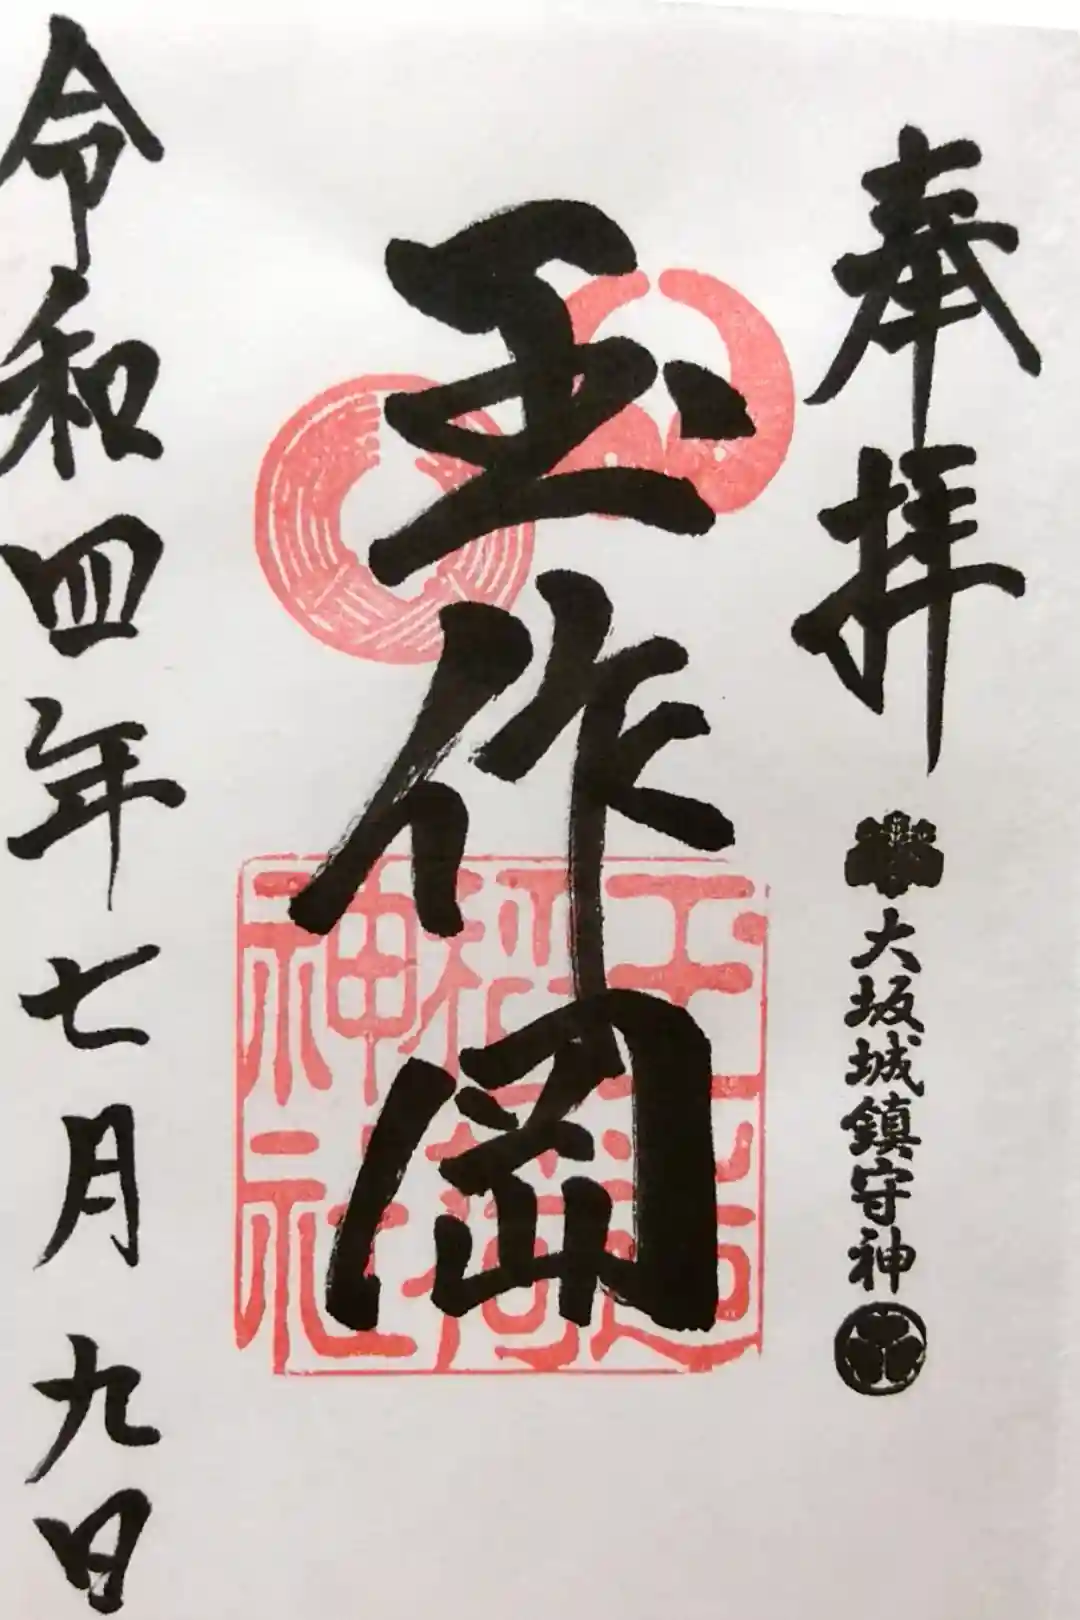 奉拝
大坂城鎮守神
玉作岡
玉造
稲荷
神社
令和四年七月九日